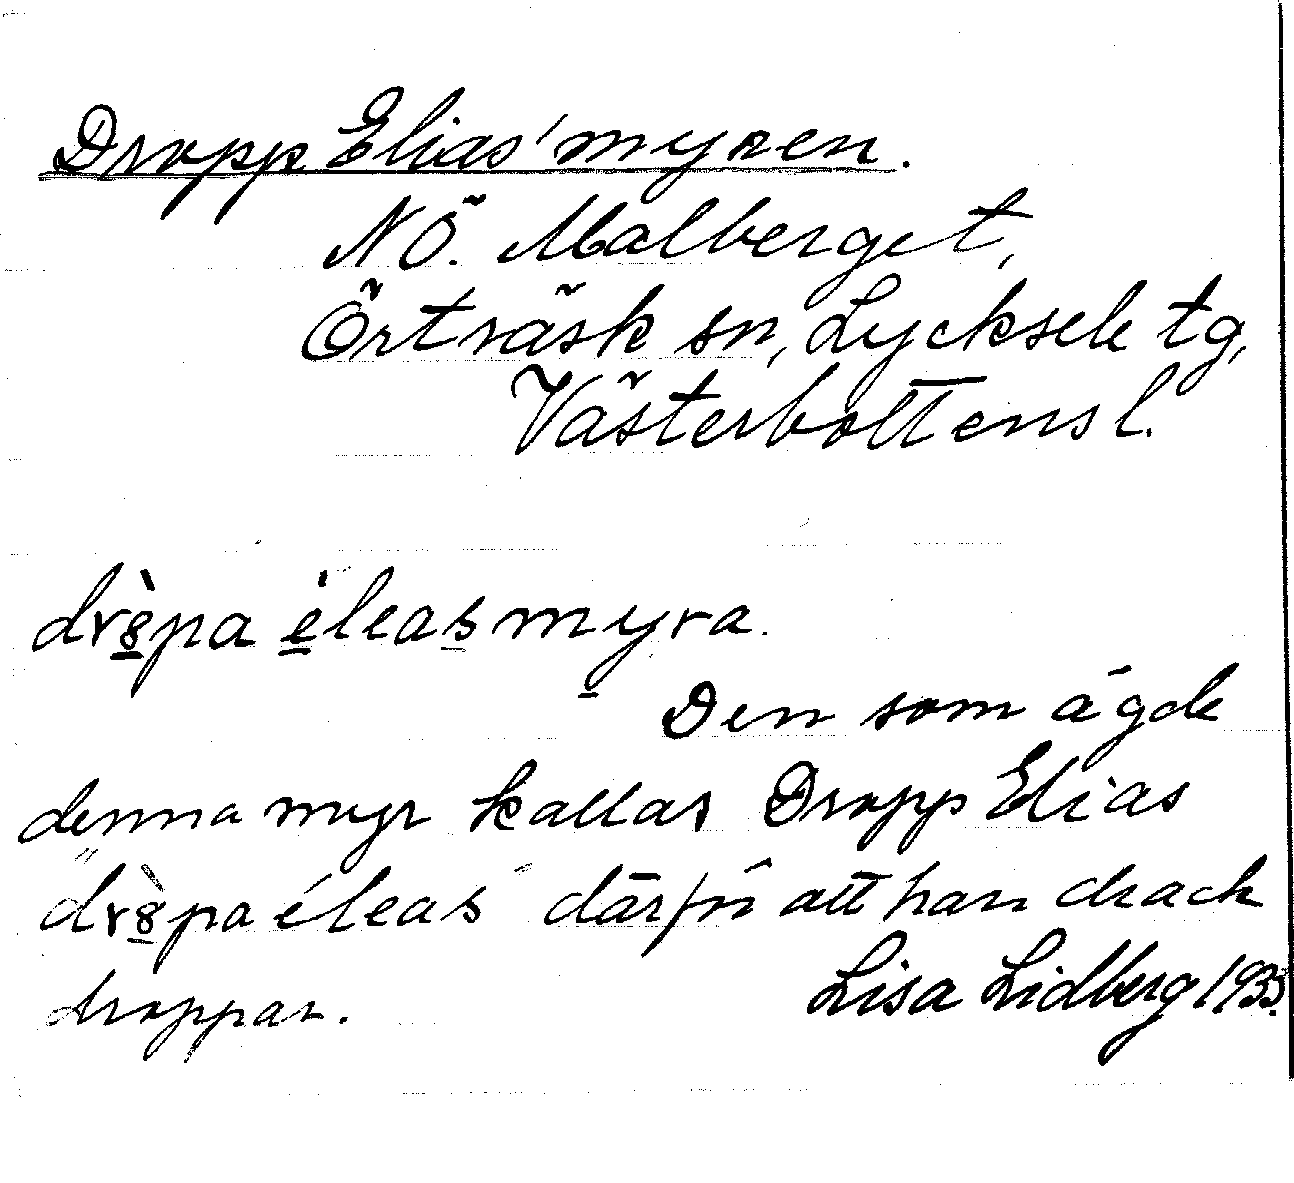 Dropp Elias' myren.
NÖ. Malberget,
Örträsk sn, Lycksele tg,
Västerbottens l.
dr8̀pa èleas myra.
Den som ägde
denna myr kallas Dropp Elias
dr8̀pa éleas därför att han drack
droppar. Lisa Lidberg 1933.